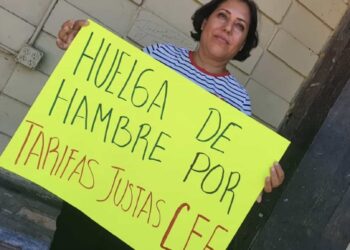 HUELGA DE
HAMBRE POR
TARIFAS JUSTAS CFE